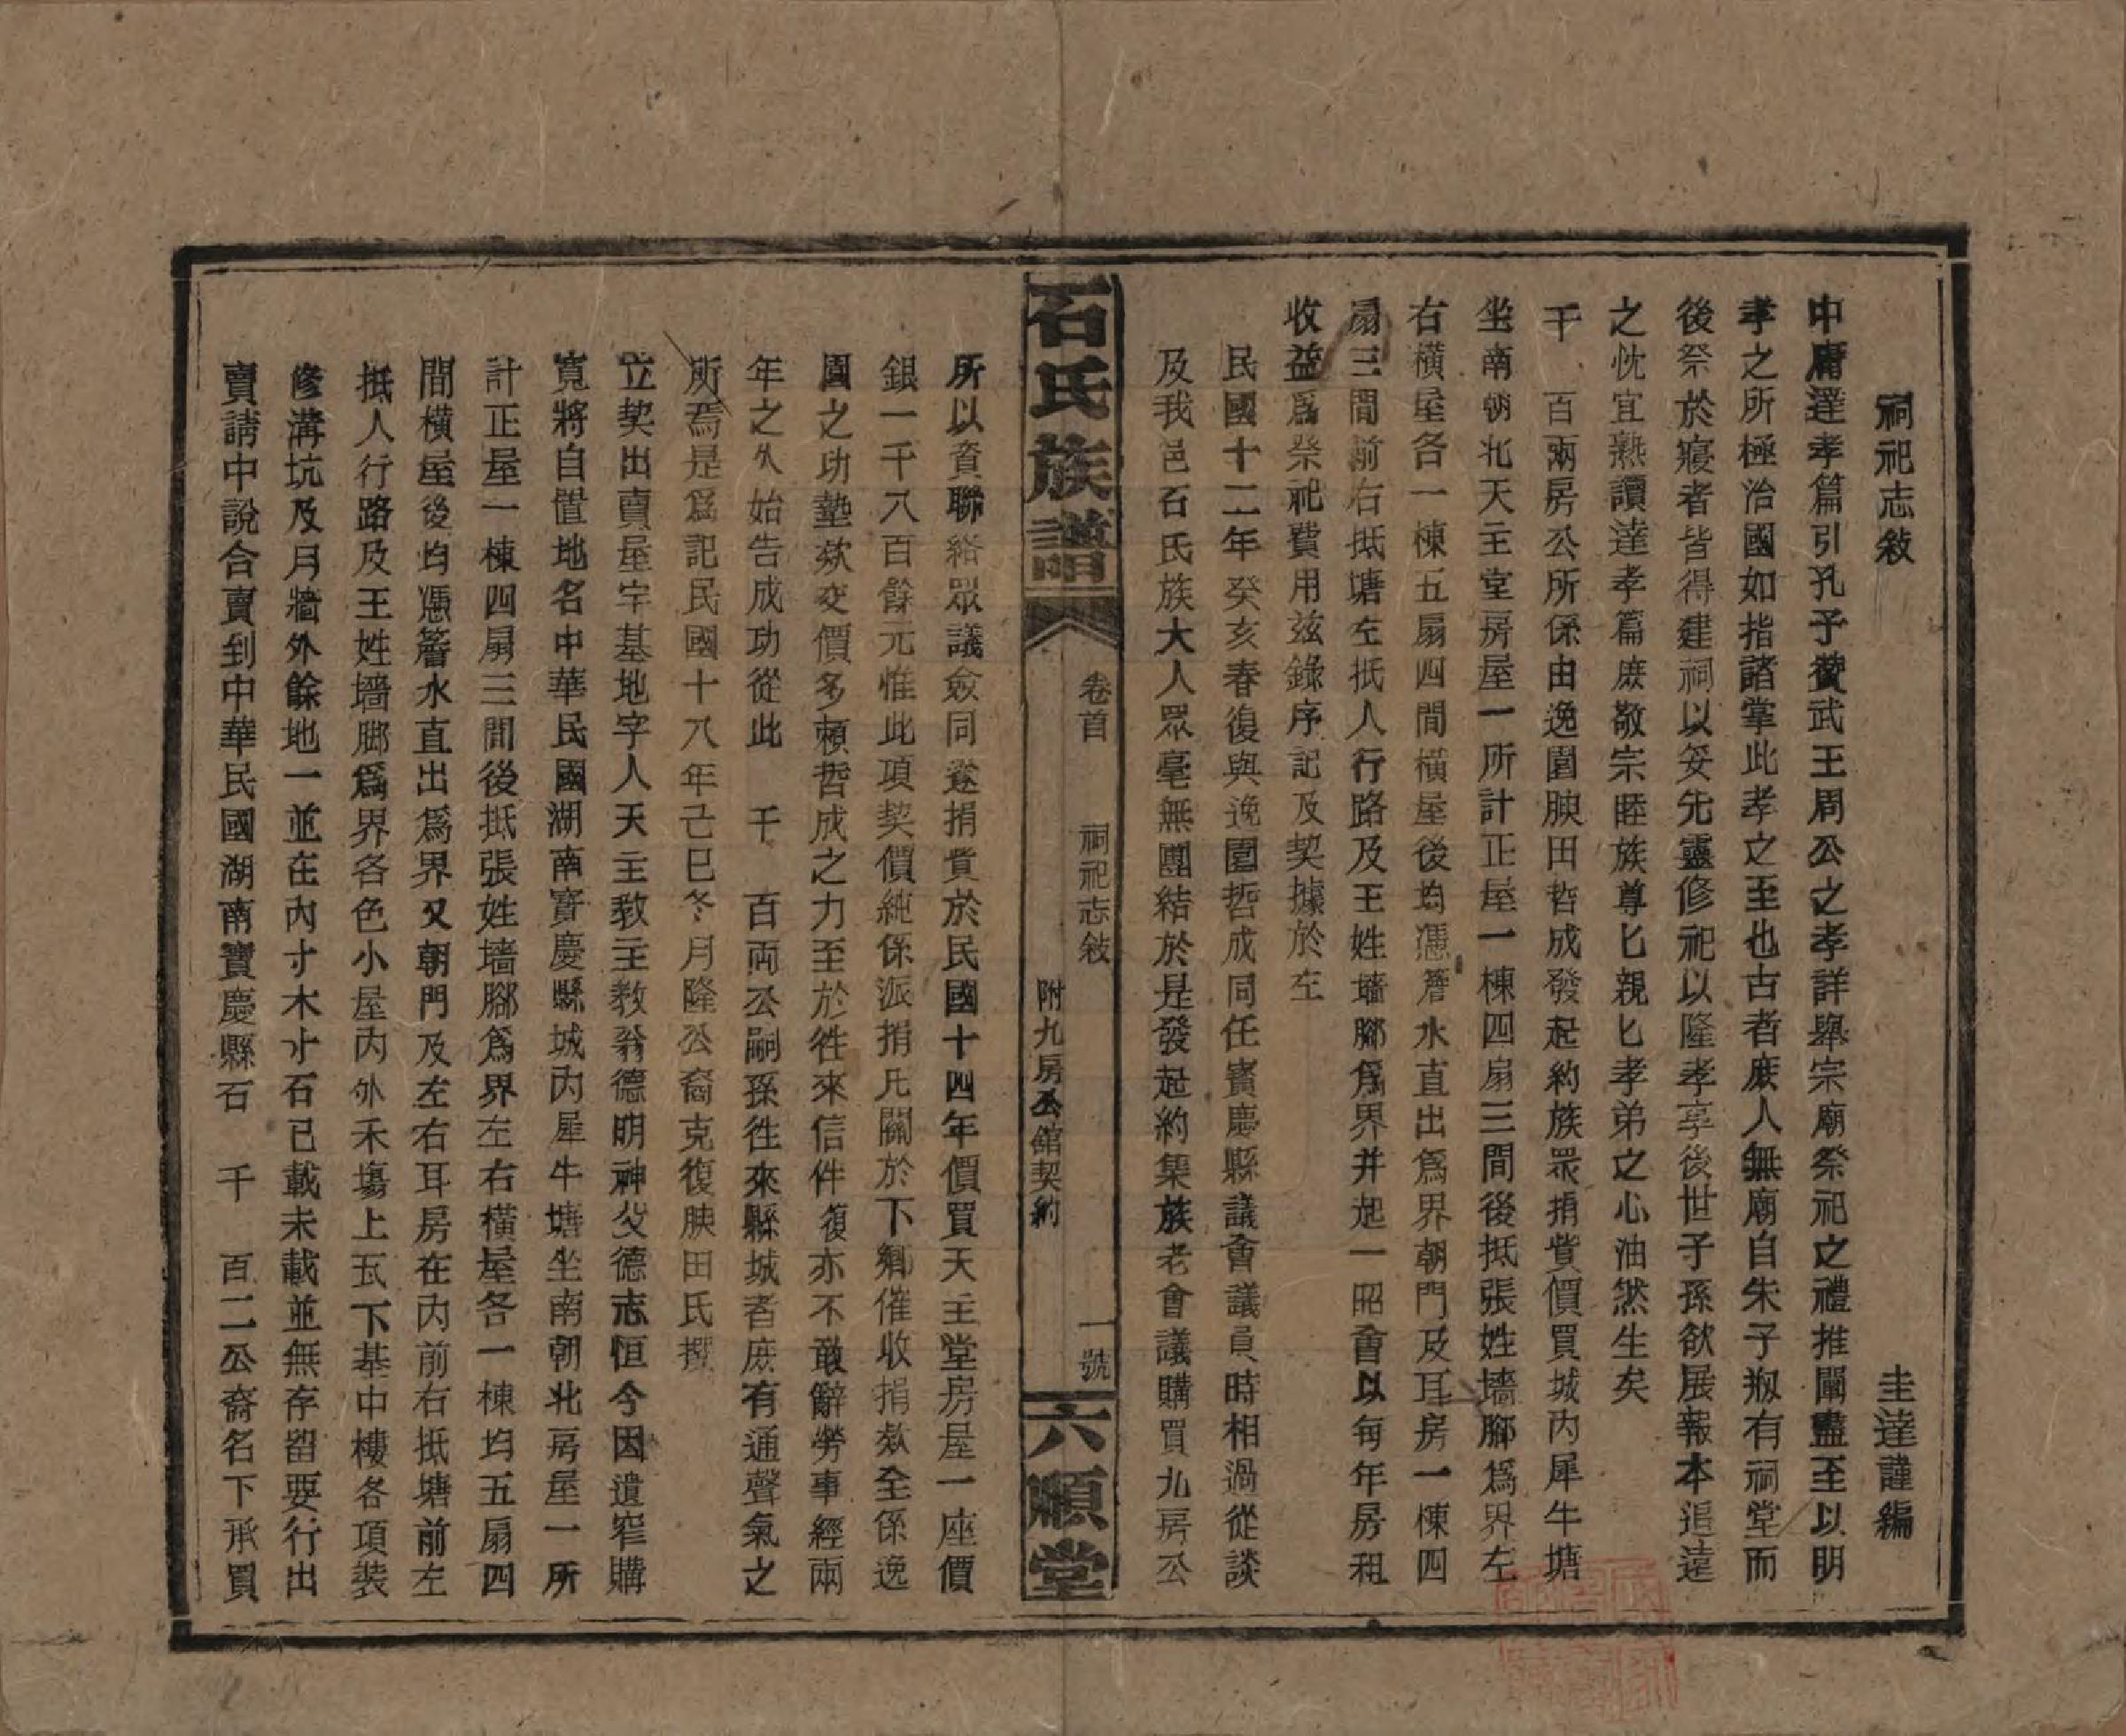 祠祀志敍
圭達謹編
中庸達孝篇引孔子贊武王周公之孝詳舉宗廟祭祀之禮推闡盡至以明
孝之所極治國如指諸掌此孝之至也古者庶人無廟自朱子剏有祠堂而
後祭於寢者皆得建祠以妥先靈修祀以隆孝享後世子孫欲展報本追遠
之忱宜熟讀達孝篇庶敬宗睦族尊匕親匕孝弟之心油然生矣
千　百兩房公所係由逸園腴田哲成發起約族眾捐貲價買城內犀牛塘
坐南朝北天主堂房屋一所計正屋一棟四扇三間後抵張姓墻腳爲界左
右橫屋各一棟五扇四間橫屋後均憑簷水直出爲界朝門及耳房一棟四
扇三間前右抵塘左抵人行路及王姓墻腳爲界并起一昭會以每年房租
收益爲祭祀費用玆錄序記及契據於左
民國十二年癸亥春復與逸園哲成同任寶慶縣議會議員時相過從談
及我邑石氏族大人眾毫無團結於是發起約集族老會議購買九房公
石氏族譜
卷首　祠祀志敍　一號
附九房公館契約
六順堂
所以資聯絡眾議僉同遂捐貲於民國十四年價買天主堂房屋一座價
銀一千八百餘元惟此項契價純係派捐凡關於下鄉催收捐欵全係逸
園之功墊欵交價多賴哲成之力至於徃來信件復亦不敢辭勞事經兩
年之久始告成功從此　千　百兩公嗣孫徃來縣城者庶有通聲氣之
所焉是爲記民國十八年己巳冬月隆公裔克復腴田氏撰
立契出賣屋宇基地字人天主教主教翁德明神父德志恒今因遺窄購
寬將自置地名中華民國湖南寶慶縣城內犀牛塘坐南朝北房屋一所
計正屋一棟四扇三間後抵張姓墻腳爲界左右橫屋各一棟均五扇四
間橫屋後均憑簷水直出爲界又朝門及左右耳房在內前右抵塘前左
抵人行路及王姓墻腳爲界各色小屋內外禾塲上瓦下基中樓各項裝
修溝坑及月牆外餘地一並在內寸木寸石已載未載並無存留要行出
賣請中說合賣到中華民國湖南寶慶縣石　千　百二公裔名下承買